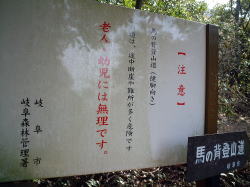 【注意】
馬の背登山道（健脚向き）
道は、途中断崖や難所が多く危険です
老人・幼児には無理です。
岐阜市
岐阜森林管理署
馬の背登山道
岐阜市